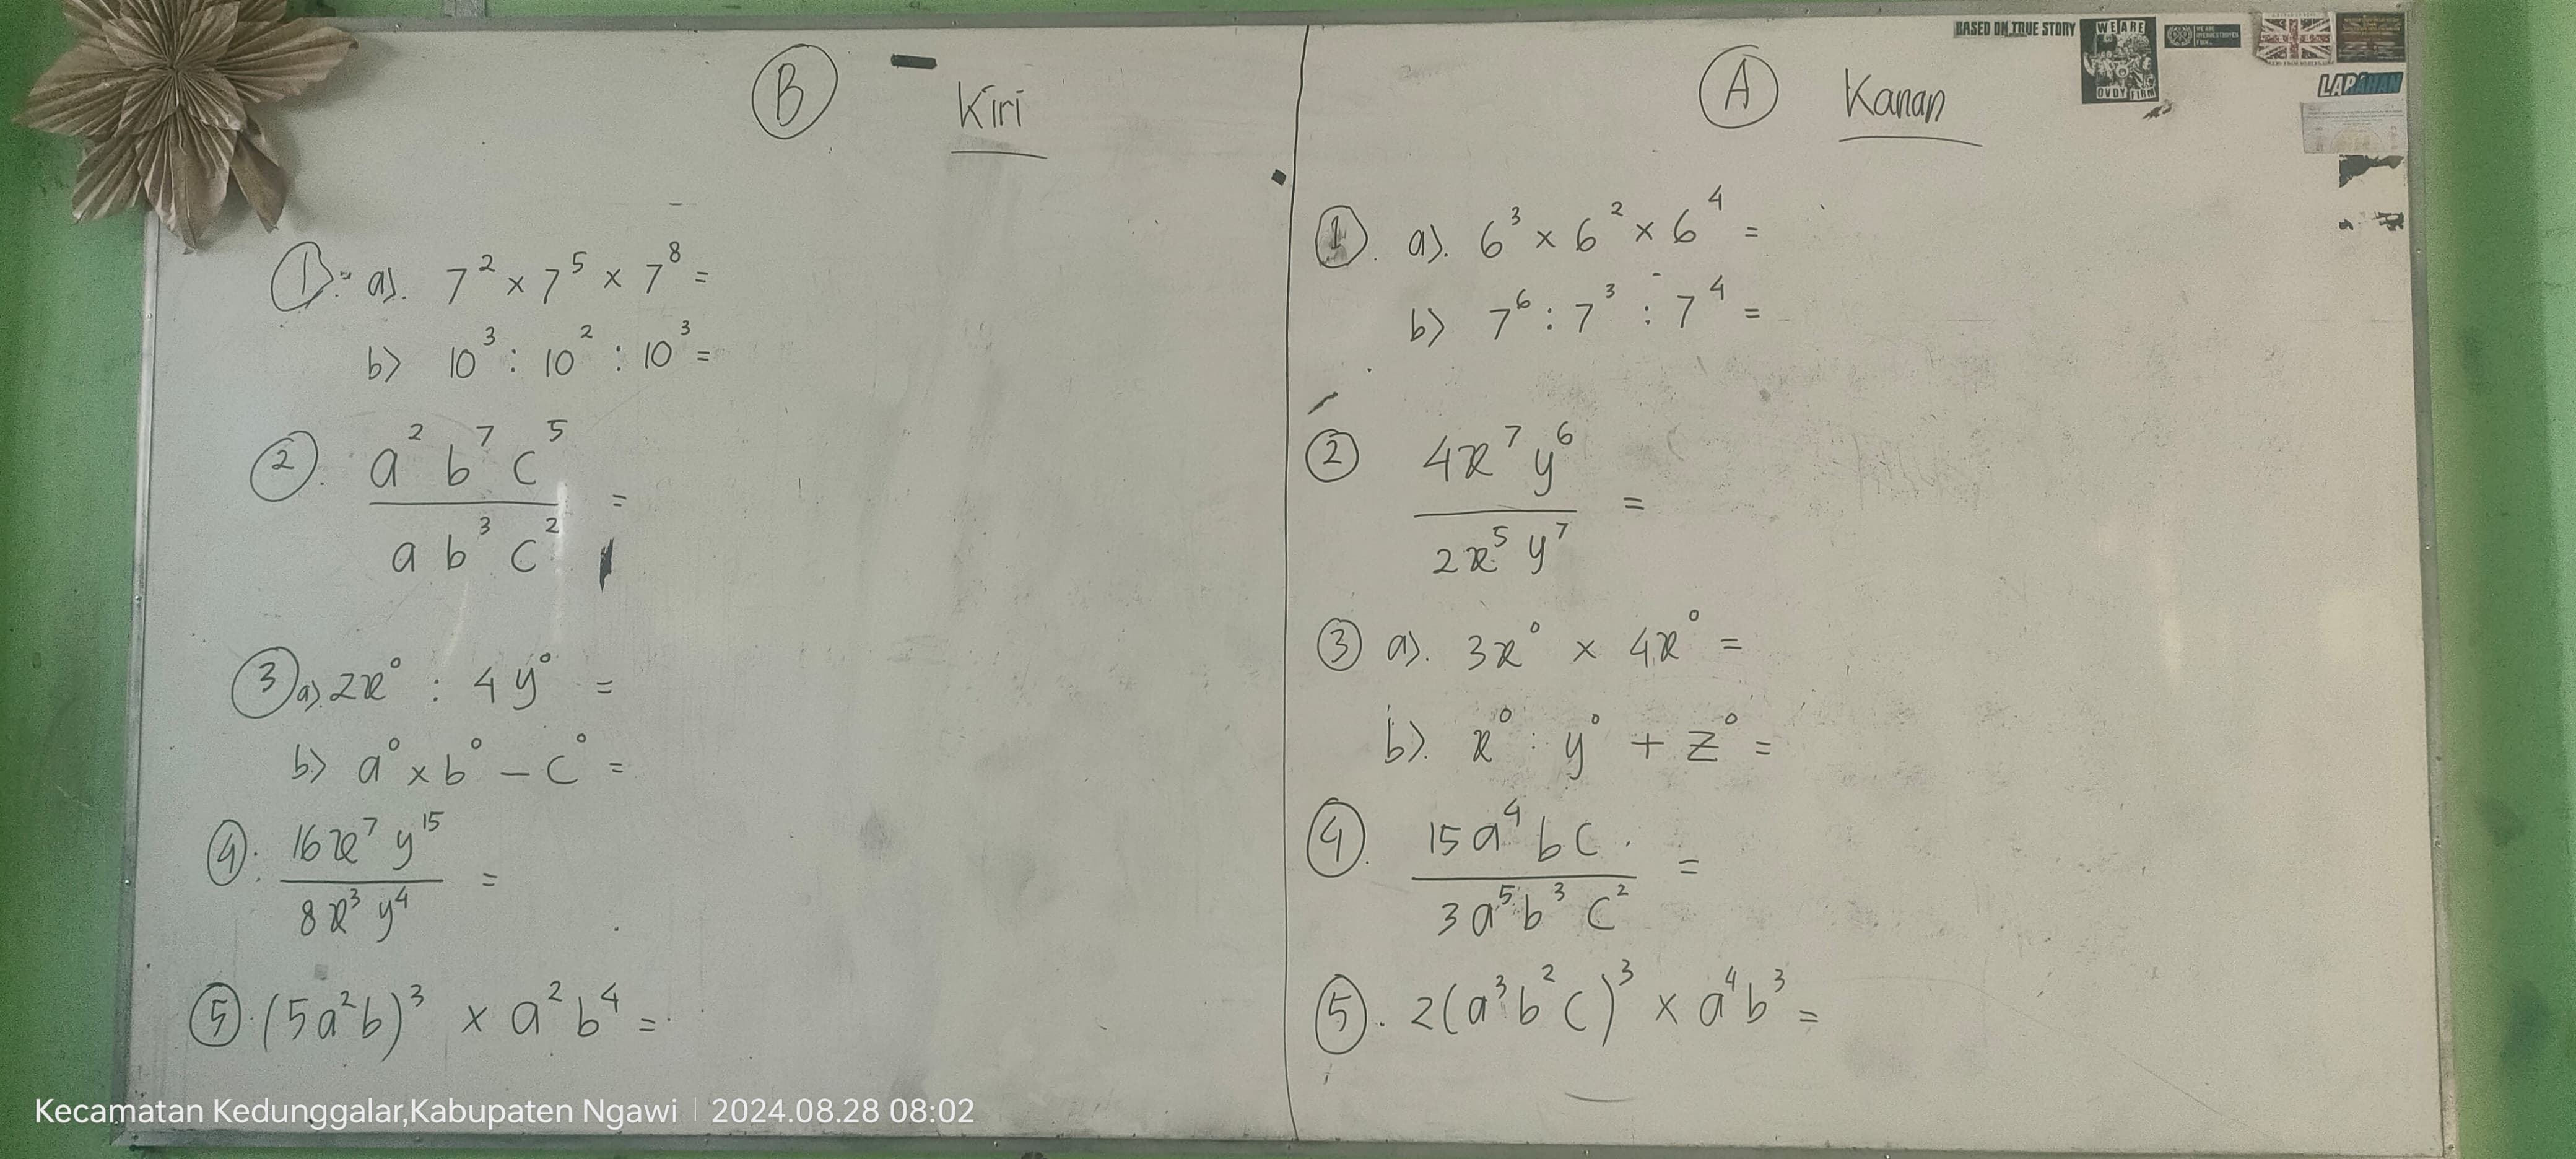 B Kiri
1. a). 7² × 7⁵ × 7⁸ =
b) 10³ : 10² : 10³ =
2. a² b⁷ c⁵
a b³ c² =
3 a). 2x⁰ : 4y⁰ =
b) a⁰ × b⁰ − c⁰ =
4. 16x⁷ y¹⁵
8x³ y⁴ =
5. (5a²b)³ × a² b⁴ =
A Kanan
1. a). 6³ × 6² × 6⁴ =
b) 7⁶ : 7³ : 7⁴ =
2 4x⁷ y⁶
2x⁵ y⁷ =
3 a). 3x⁰ × 4x⁰ =
b). x⁰ : y⁰ + z⁰ =
4. 15a⁴ b c
3a⁵ b³ c² =
5. 2(a³b²c)³ × a⁴b³ =
BASED ON TRUE STORY
WE ARE
OVDY FIRM
LAPAHAN
Kecamatan Kedunggalar,Kabupaten Ngawi | 2024.08.28 08:02